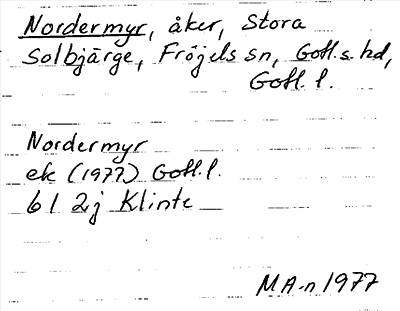 Nordermyr, åker, Stora
Solbjärge, Fröjels sn, Gotl. s. hd,
Gotl. l.
Nordermyr
ek (1977) Gotl. l.
6 I 2j Klinte
MA-n 1977